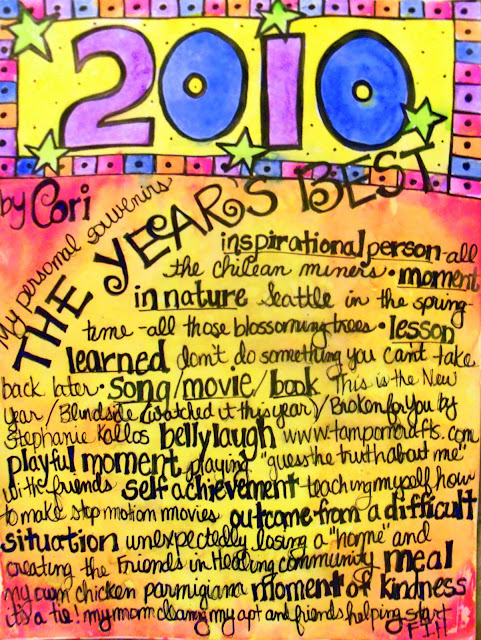 2010
by Cori
My personal souvenirs
THE YEAR'S BEST
inspirational person-all
the chilean miners • moment
in nature Seattle in the spring-
time -all those blossoming trees • lesson
learned don't do something you can't take
back later • song/movie/book This is the New
Year/Blindside (watched it this year)/Broken for You by
Stephanie Kallos belly laugh www.tamponcrafts.com
playful moment playing "guess the truth about me"
with friends self achievement teaching myself how
to make stop motion movies outcome from a difficult
situation unexpectedly losing a "home" and
creating the Friends in Healing community meal
my own chicken parmigiana moment of kindness
it's a tie! my mom cleaning my apt and friends helping start
FIH